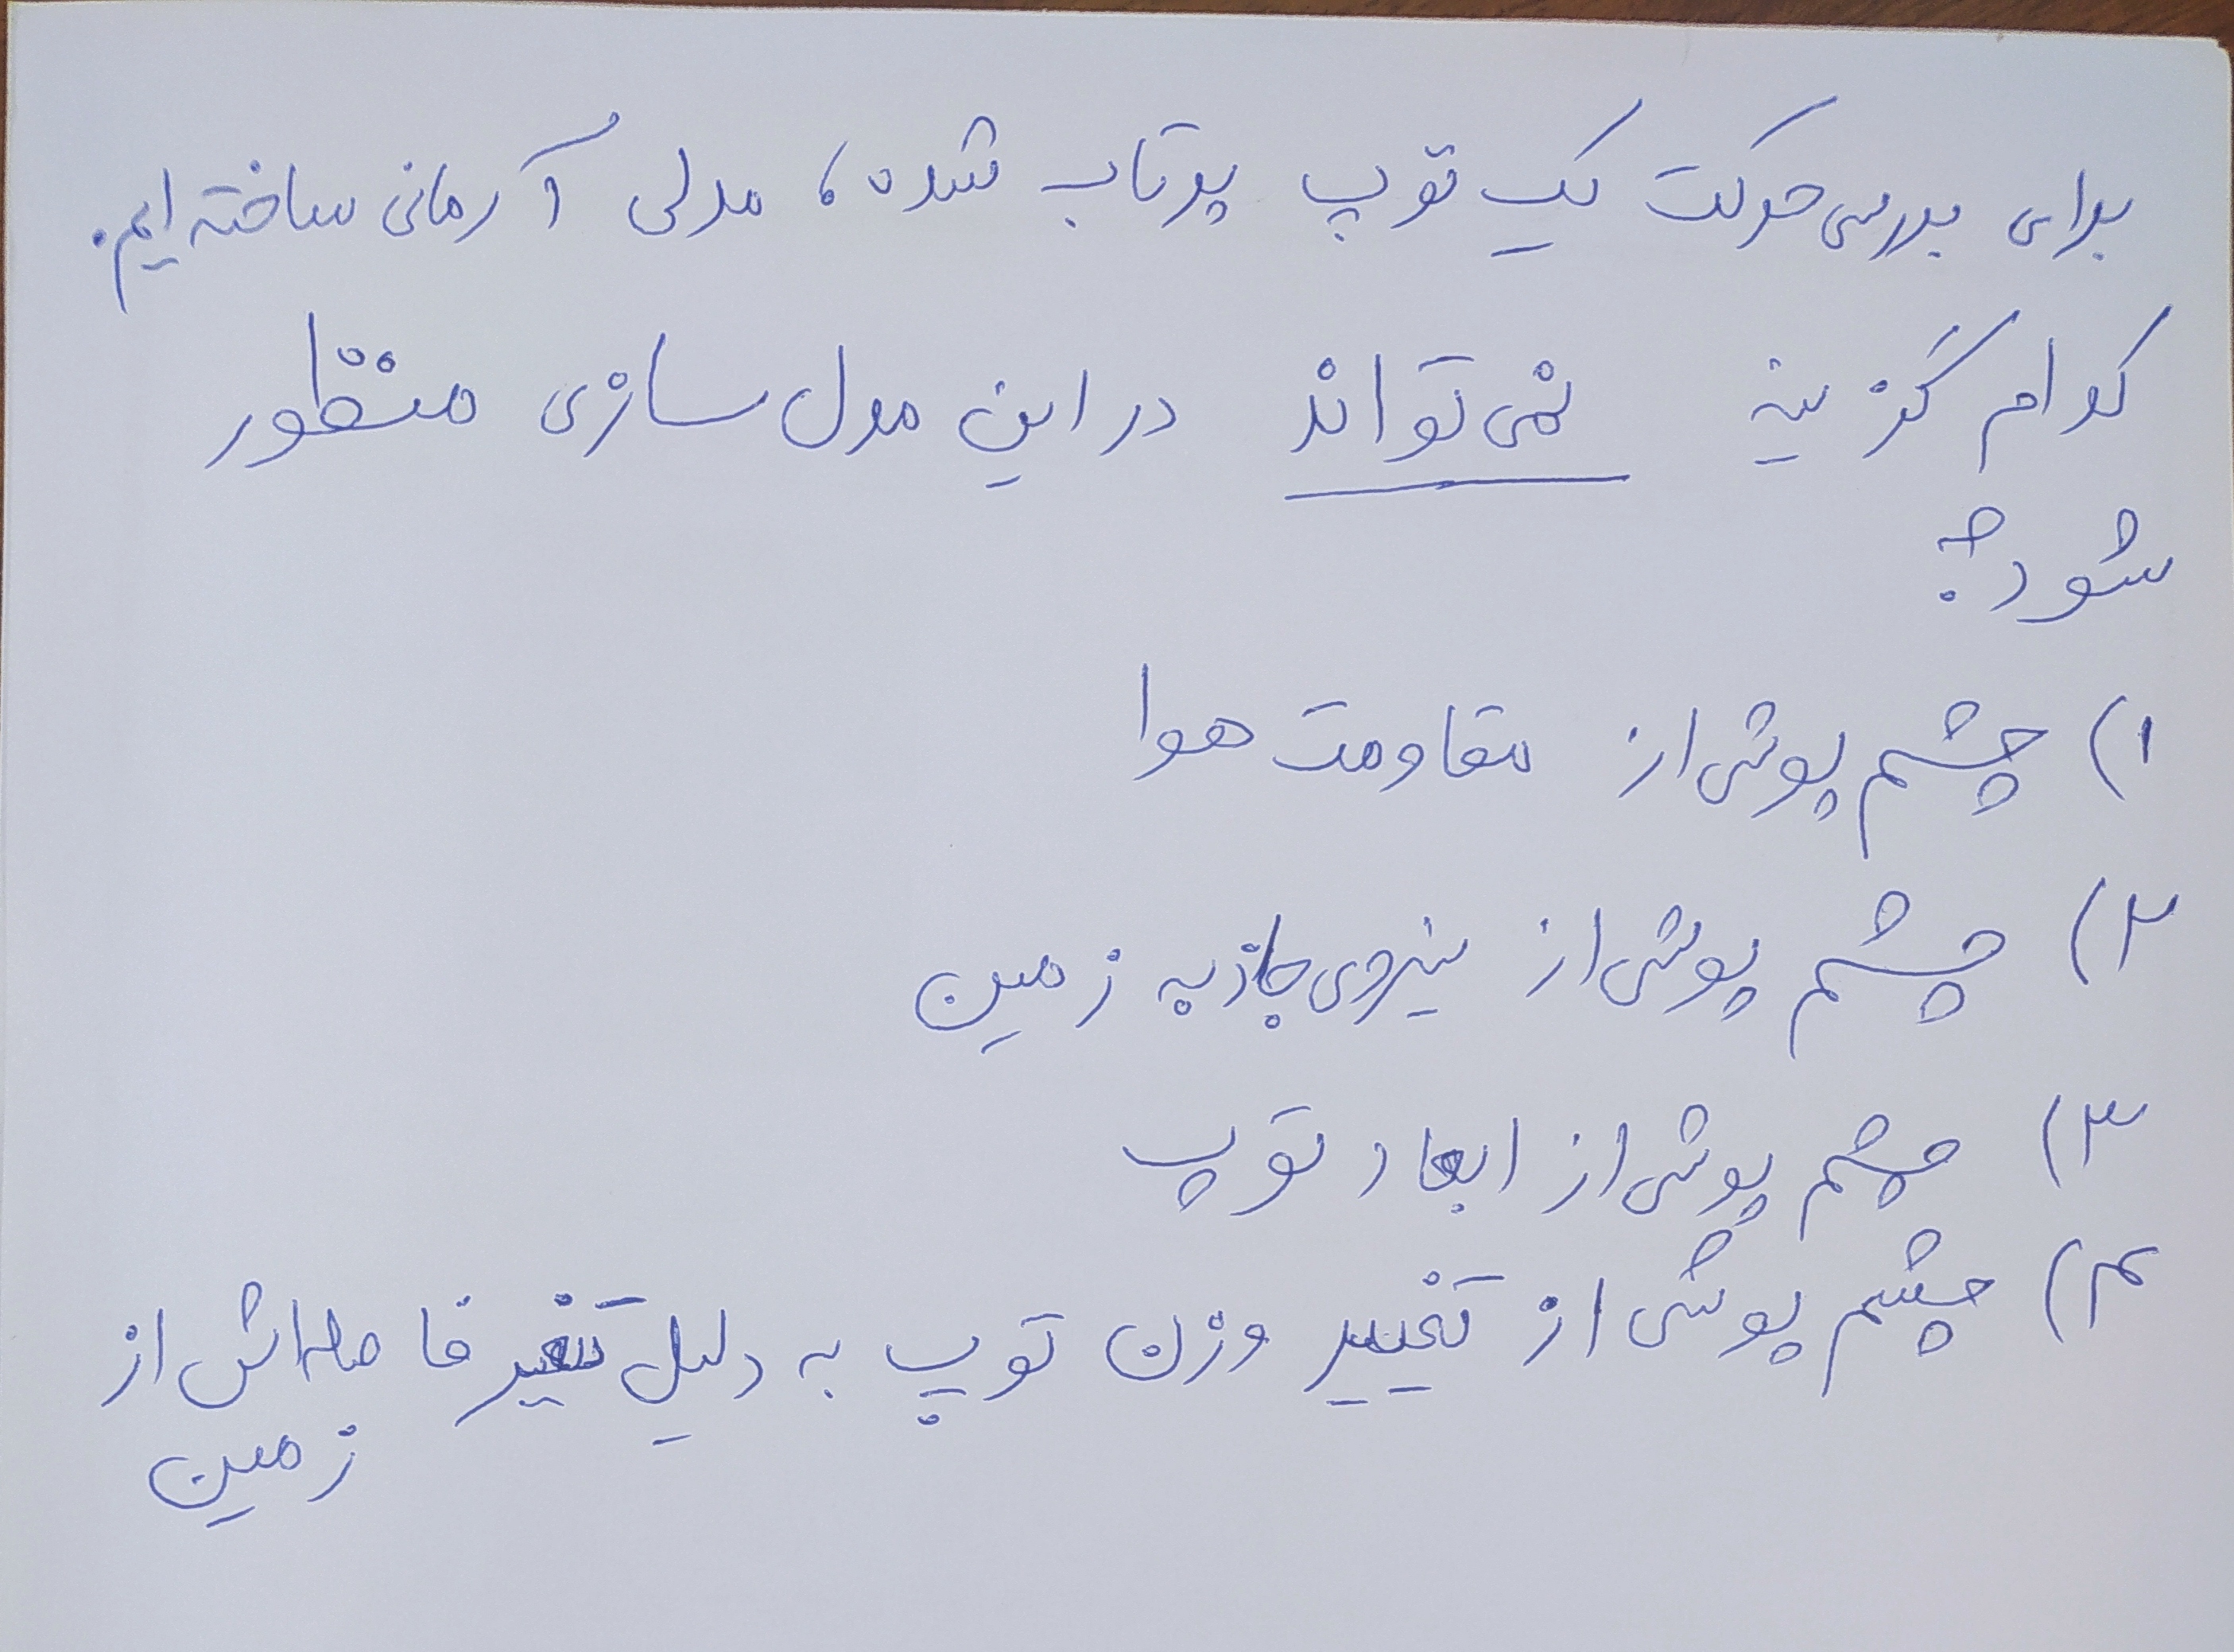 برای بررسی حرکت یک توپ پرتاب شده، مدلی آرمانی ساخته ایم.
کدام گزینه نمی تواند در این مدل سازی منظور
شود؟
۱) چشم پوشی از مقاومت هوا
۲) چشم پوشی از نیروی جاذبه زمین
۳) چشم پوشی از ابعاد توپ
۴) چشم پوشی از تغییر وزن توپ به دلیل تغییر فاصله اش از
زمین